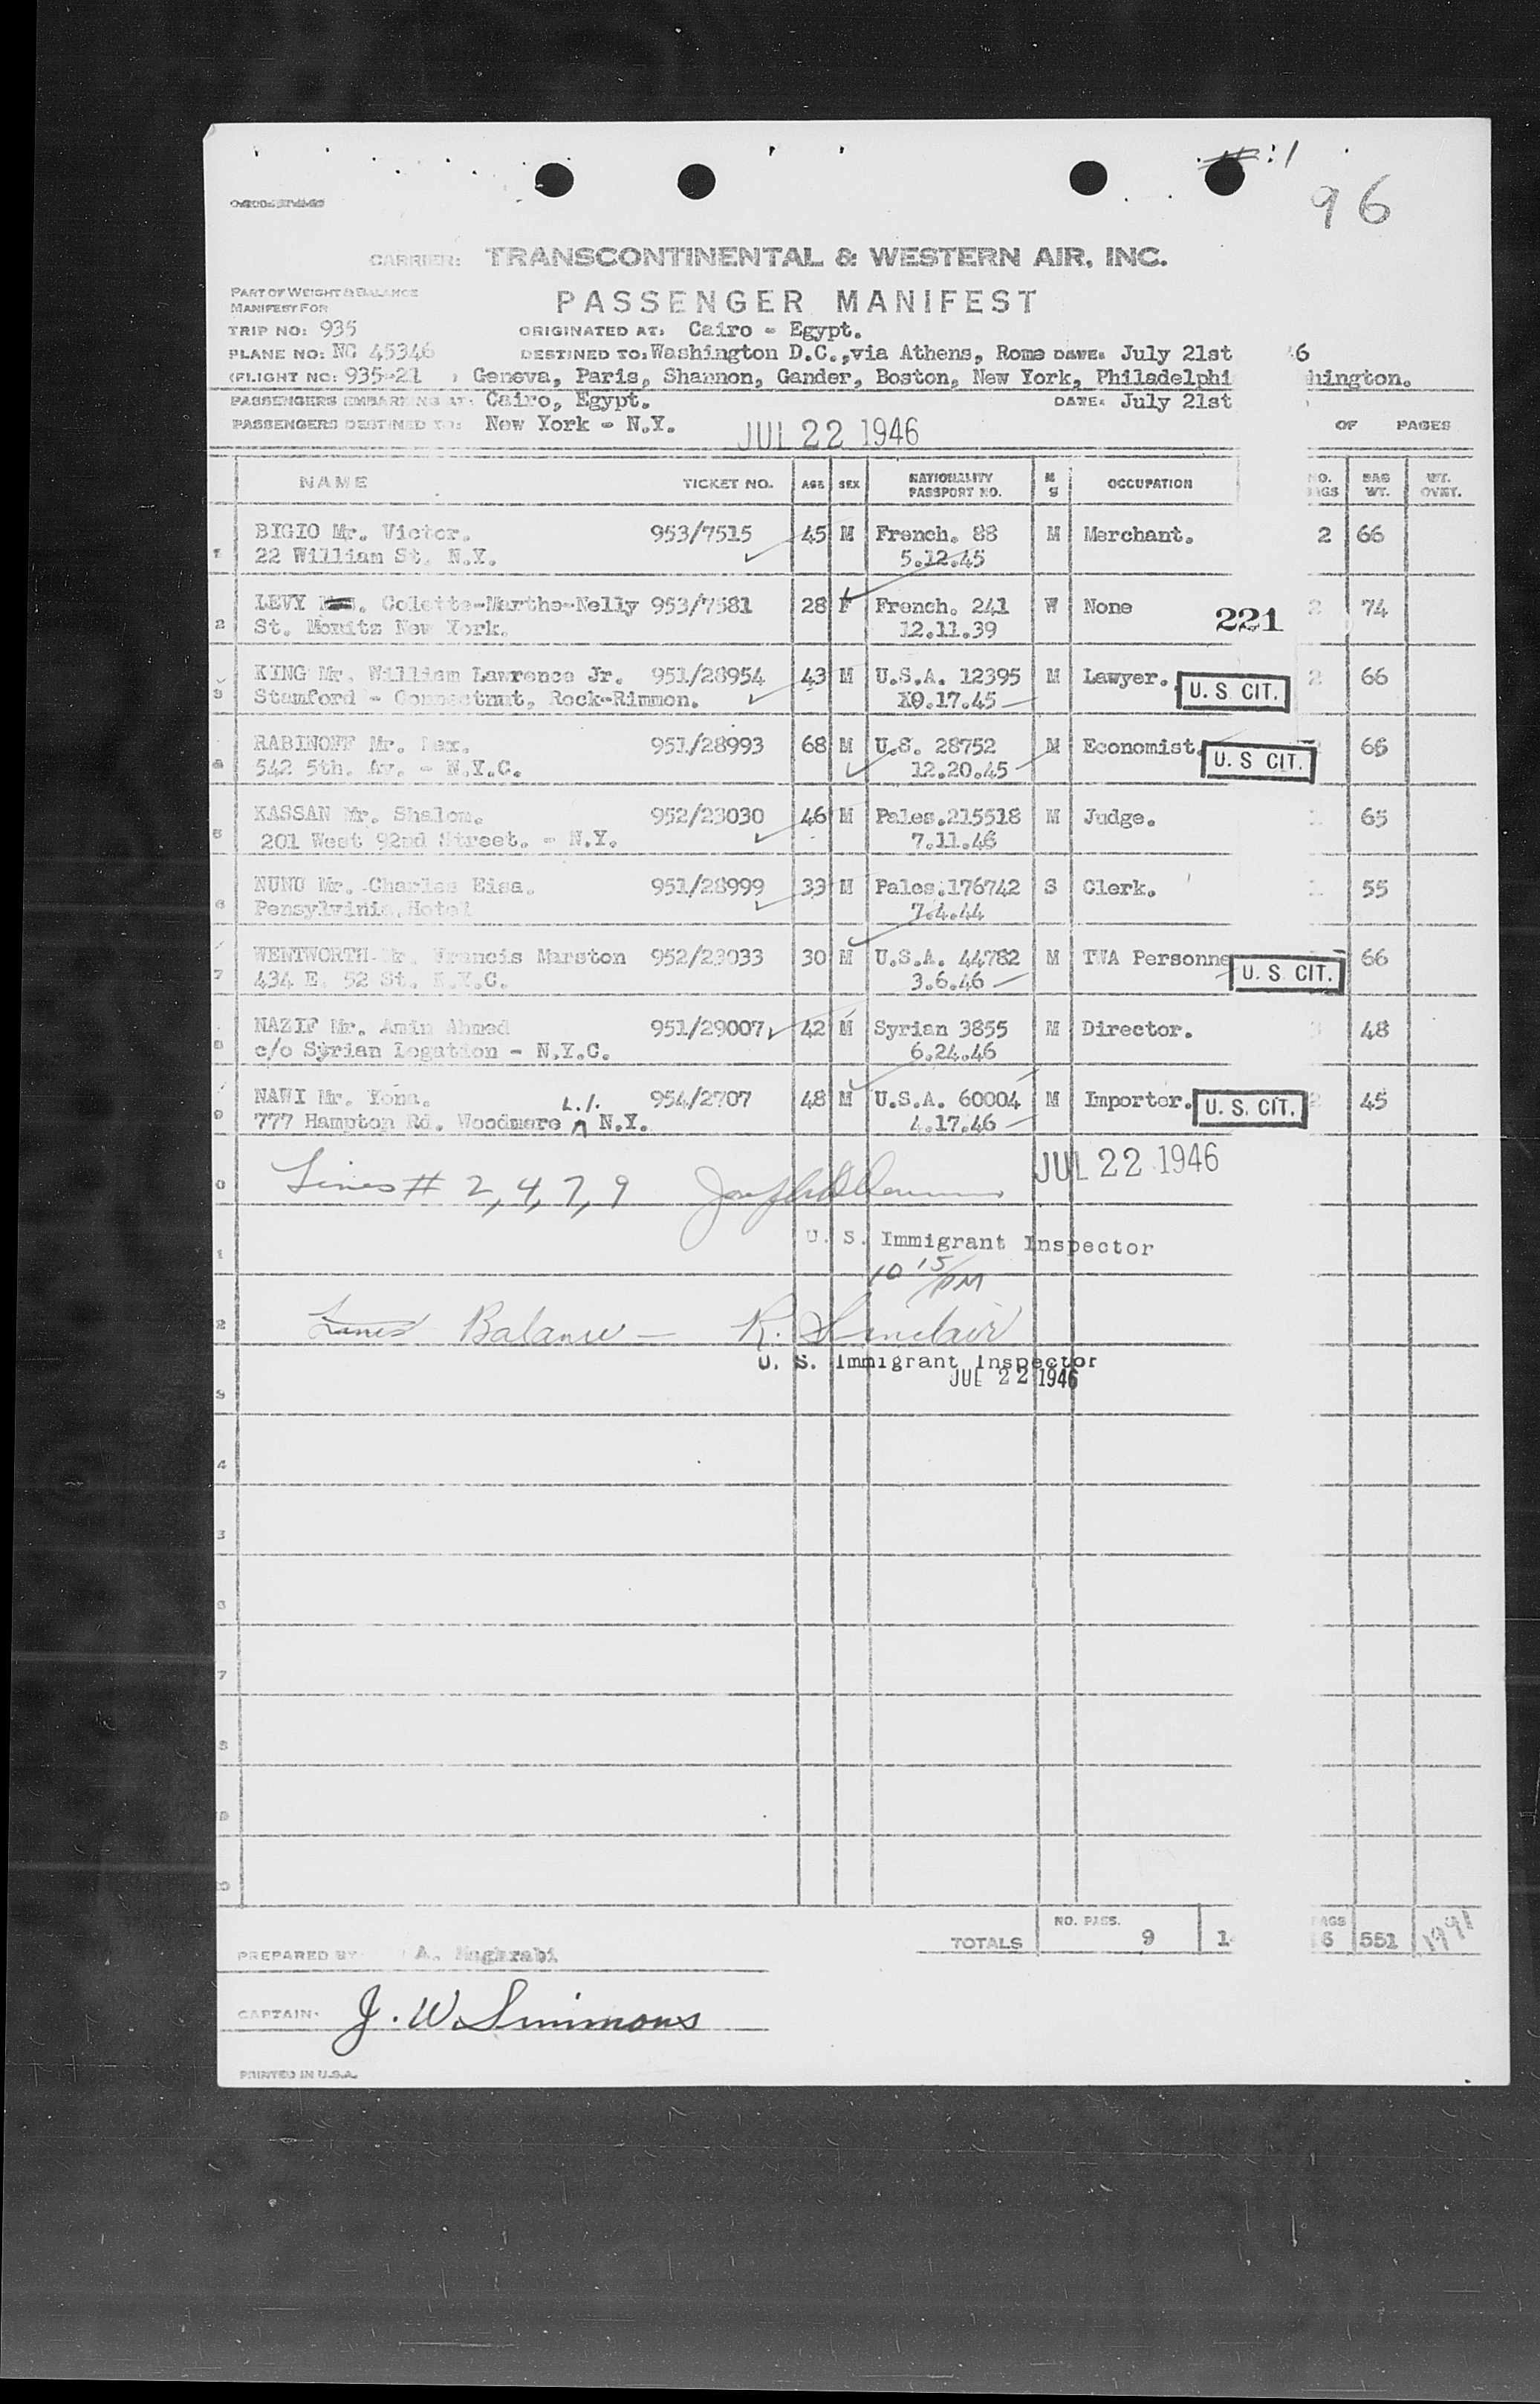 #:1
96
CARRIER: TRANSCONTINENTAL & WESTERN AIR, INC.
PART OF WEIGHT & BALANCE
MANIFEST FOR
PASSENGER MANIFEST
TRIP NO: 935 ORIGINATED AT: Cairo - Egypt.
PLANE NO: NC 45346 DESTINED TO: Washington D.C.,via Athens, Rome DATE: July 21st 46
(FLIGHT NO: 935-21 ) Geneva, Paris, Shannon, Gander, Boston, New York, Philadelphi hington.
PASSENGERS EMBARKING AT: Cairo, Egypt. DATE: July 21st
PASSENGERS DESTINED TO: New York - N.Y. JUL 22 1946 OF PAGES
NAME TICKET NO. AGE SEX NATIONALITY PASSPORT NO. M S OCCUPATION NO. BAGS BAG WT. WT. OVWT.
BIGIO Mr. Victor. 953/7515 45 M French. 88 M Merchant. 2 66
1 22 William St. N.Y. 5.12.45
LEVY . Colette-Marthe-Nelly 953/7581 28 F French. 241 W None 221 2 74
2 St. Moritz New York. 12.11.39
KING Mr. William Lawrence Jr. 951/28954 43 M U.S.A. 12395 M Lawyer. U. S. CIT. 2 66
3 Stamford - Connectnut, Rock-Rimmon. X0.17.45
RABINOFF Mr. Max. 951/28993 68 M U.S. 28752 M Economist. U. S CIT. 66
4 542 5th. Av. - N.Y.C. 12.20.45
KASSAN Mr. Shalom. 952/23030 46 M Pales.215518 M Judge. 1 65
5 201 West 92nd Street. - N.Y. 7.11.46
NUNU Mr. Charles Eisa. 951/28999 33 M Pales.176742 S Clerk. 1 55
6 Pensylvinia,Hotel 7.4.44
WENTWORTH Mr. Francis Marston 952/23033 30 M U.S.A. 44782 M TWA Personne U. S. CIT. 66
7 434 E. 52 St. N.Y.C. 3.6.46
NAZIF Mr. Amin Ahmed 951/29007 42 M Syrian 3855 M Director. 3 48
8 c/o Syrian Legation - N.Y.C. 6.24.46
NAWI Mr. Yona. 954/2707 48 M U.S.A. 60004 M Importer. U. S. CIT. 2 45
9 777 Hampton Rd. Woodmere L.I. N.Y. 4.17.46
JUL 22 1946
0 Lines # 2, 4, 7, 9
1 U. S. Immigrant Inspector
10 15/PM
2 Lines Balance - R. Sinclair
U. S. Immigrant Inspector
3 JUL 22 1946
4
5
6
7
8
9
0
TOTALS NO. PASS. 9 1 BAGS 6 551 1991
PREPARED BY: A. Maghrabi
CAPTAIN: J. W. Simmons
PRINTED IN U.S.A.